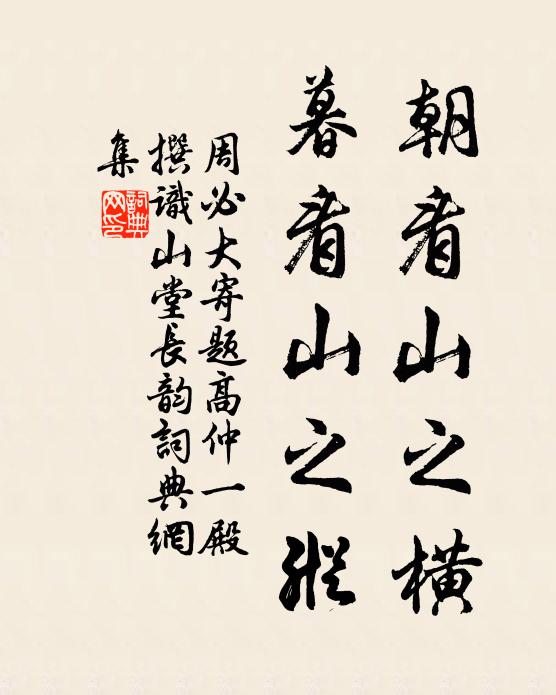 朝看山之横
暮看山之縱
周必大寄題高仲一殿
撰識山堂長韵詞典網
集
詞典
网印